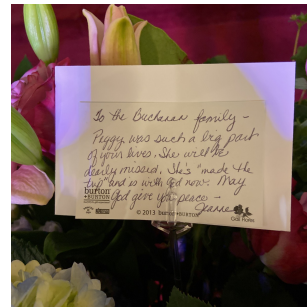 To the Buchanan family –
Peggy was such a big part
of your lives. She will be
dearly missed. She's "made the
trip" and is with God now. May
God give you peace –
Jeanne
burton
+BURTON
© 2013 burton+BURTON